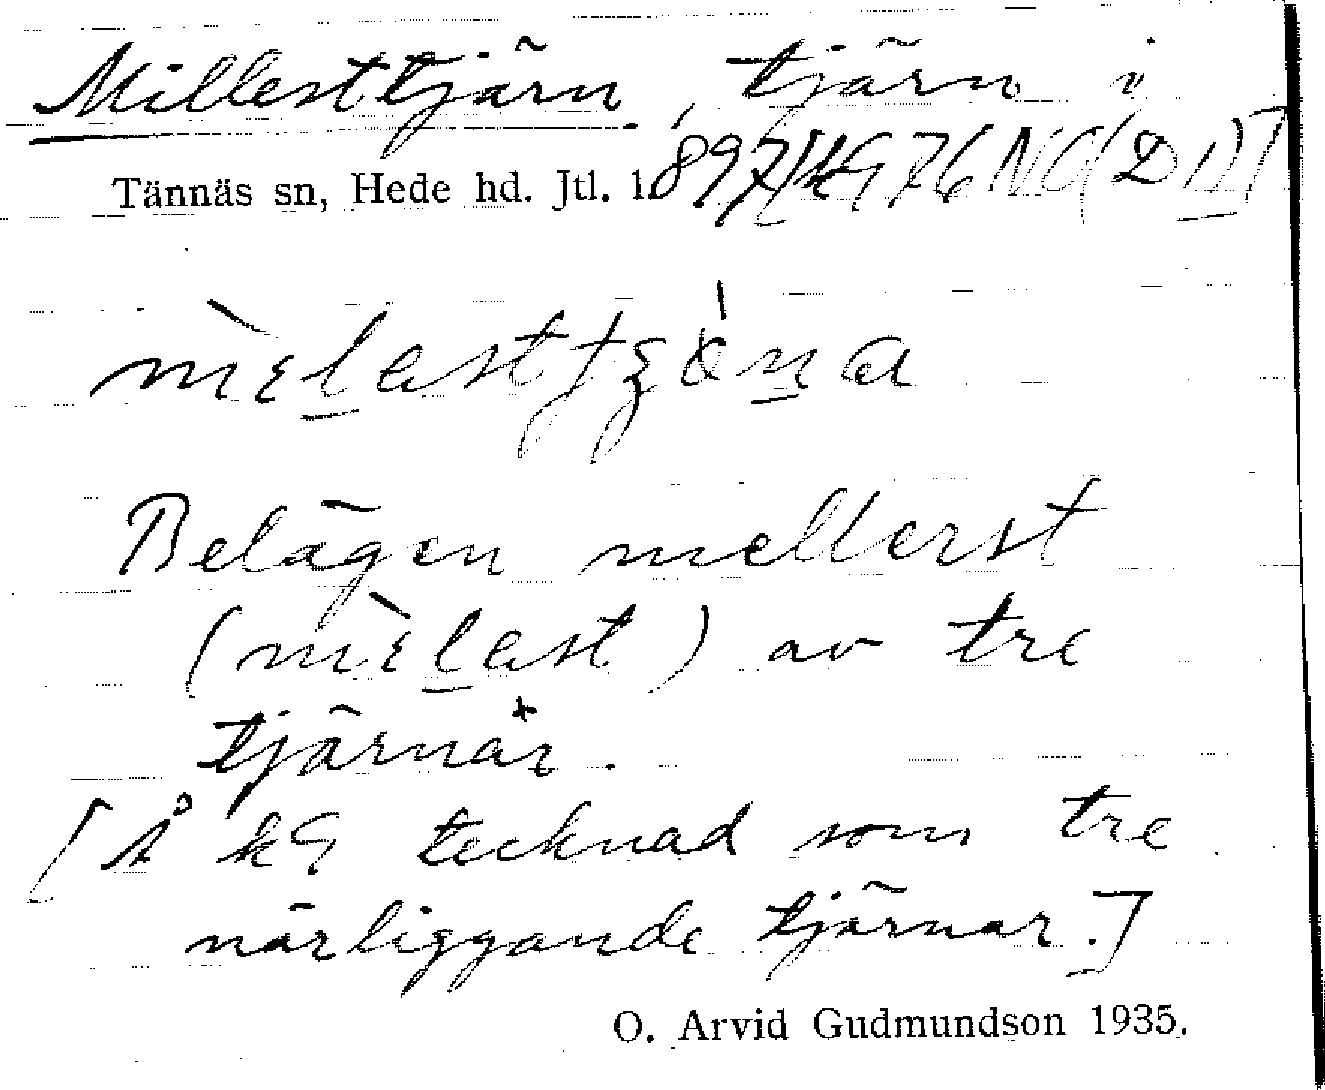 Millesttjärn, tjärn i
Tännäs sn, Hede hd. Jtl. l. 897
mὲlasttʒöna
Belägen mellerst
(mὲlast) av tre
tjärnar.
[Å kG tecknad som tre
närliggande tjärnar.]
O. Arvid Gudmundson 1935.